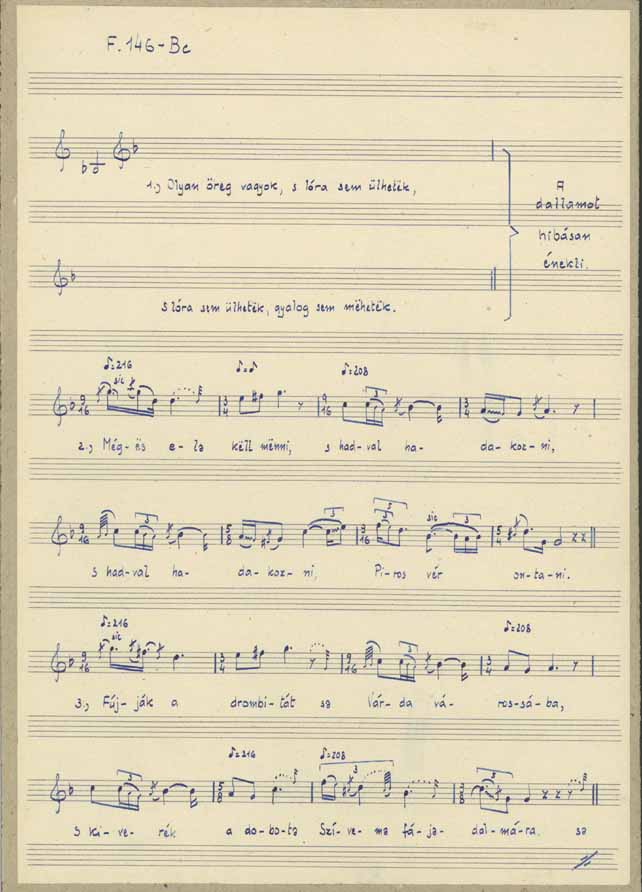 F. 146-Bc
1.) Olyan öreg vagyok, s lóra sem ülheték,
A
dallamot
hibásan
énekli.
S lóra sem ülheték, gyalog sem mëheték.
♪=216 ♪=♪ ♪=208
sic
2.) Még-ës e-lə këll mënni, s had-val ha- da-koz-ni,
sic
s had-val ha- da-koz-ni, Pi-ros vér on-ta-ni.
♪=216 ♪=208
sic
3.) Fúj-ják a drombi-tát sə Vár-da vá- ros-sá-ba,
♪=216 ♪=208
S ki-ve-rék a do-bo-tə Szí-ve-mə fá-jə- dal-má-ra. sə